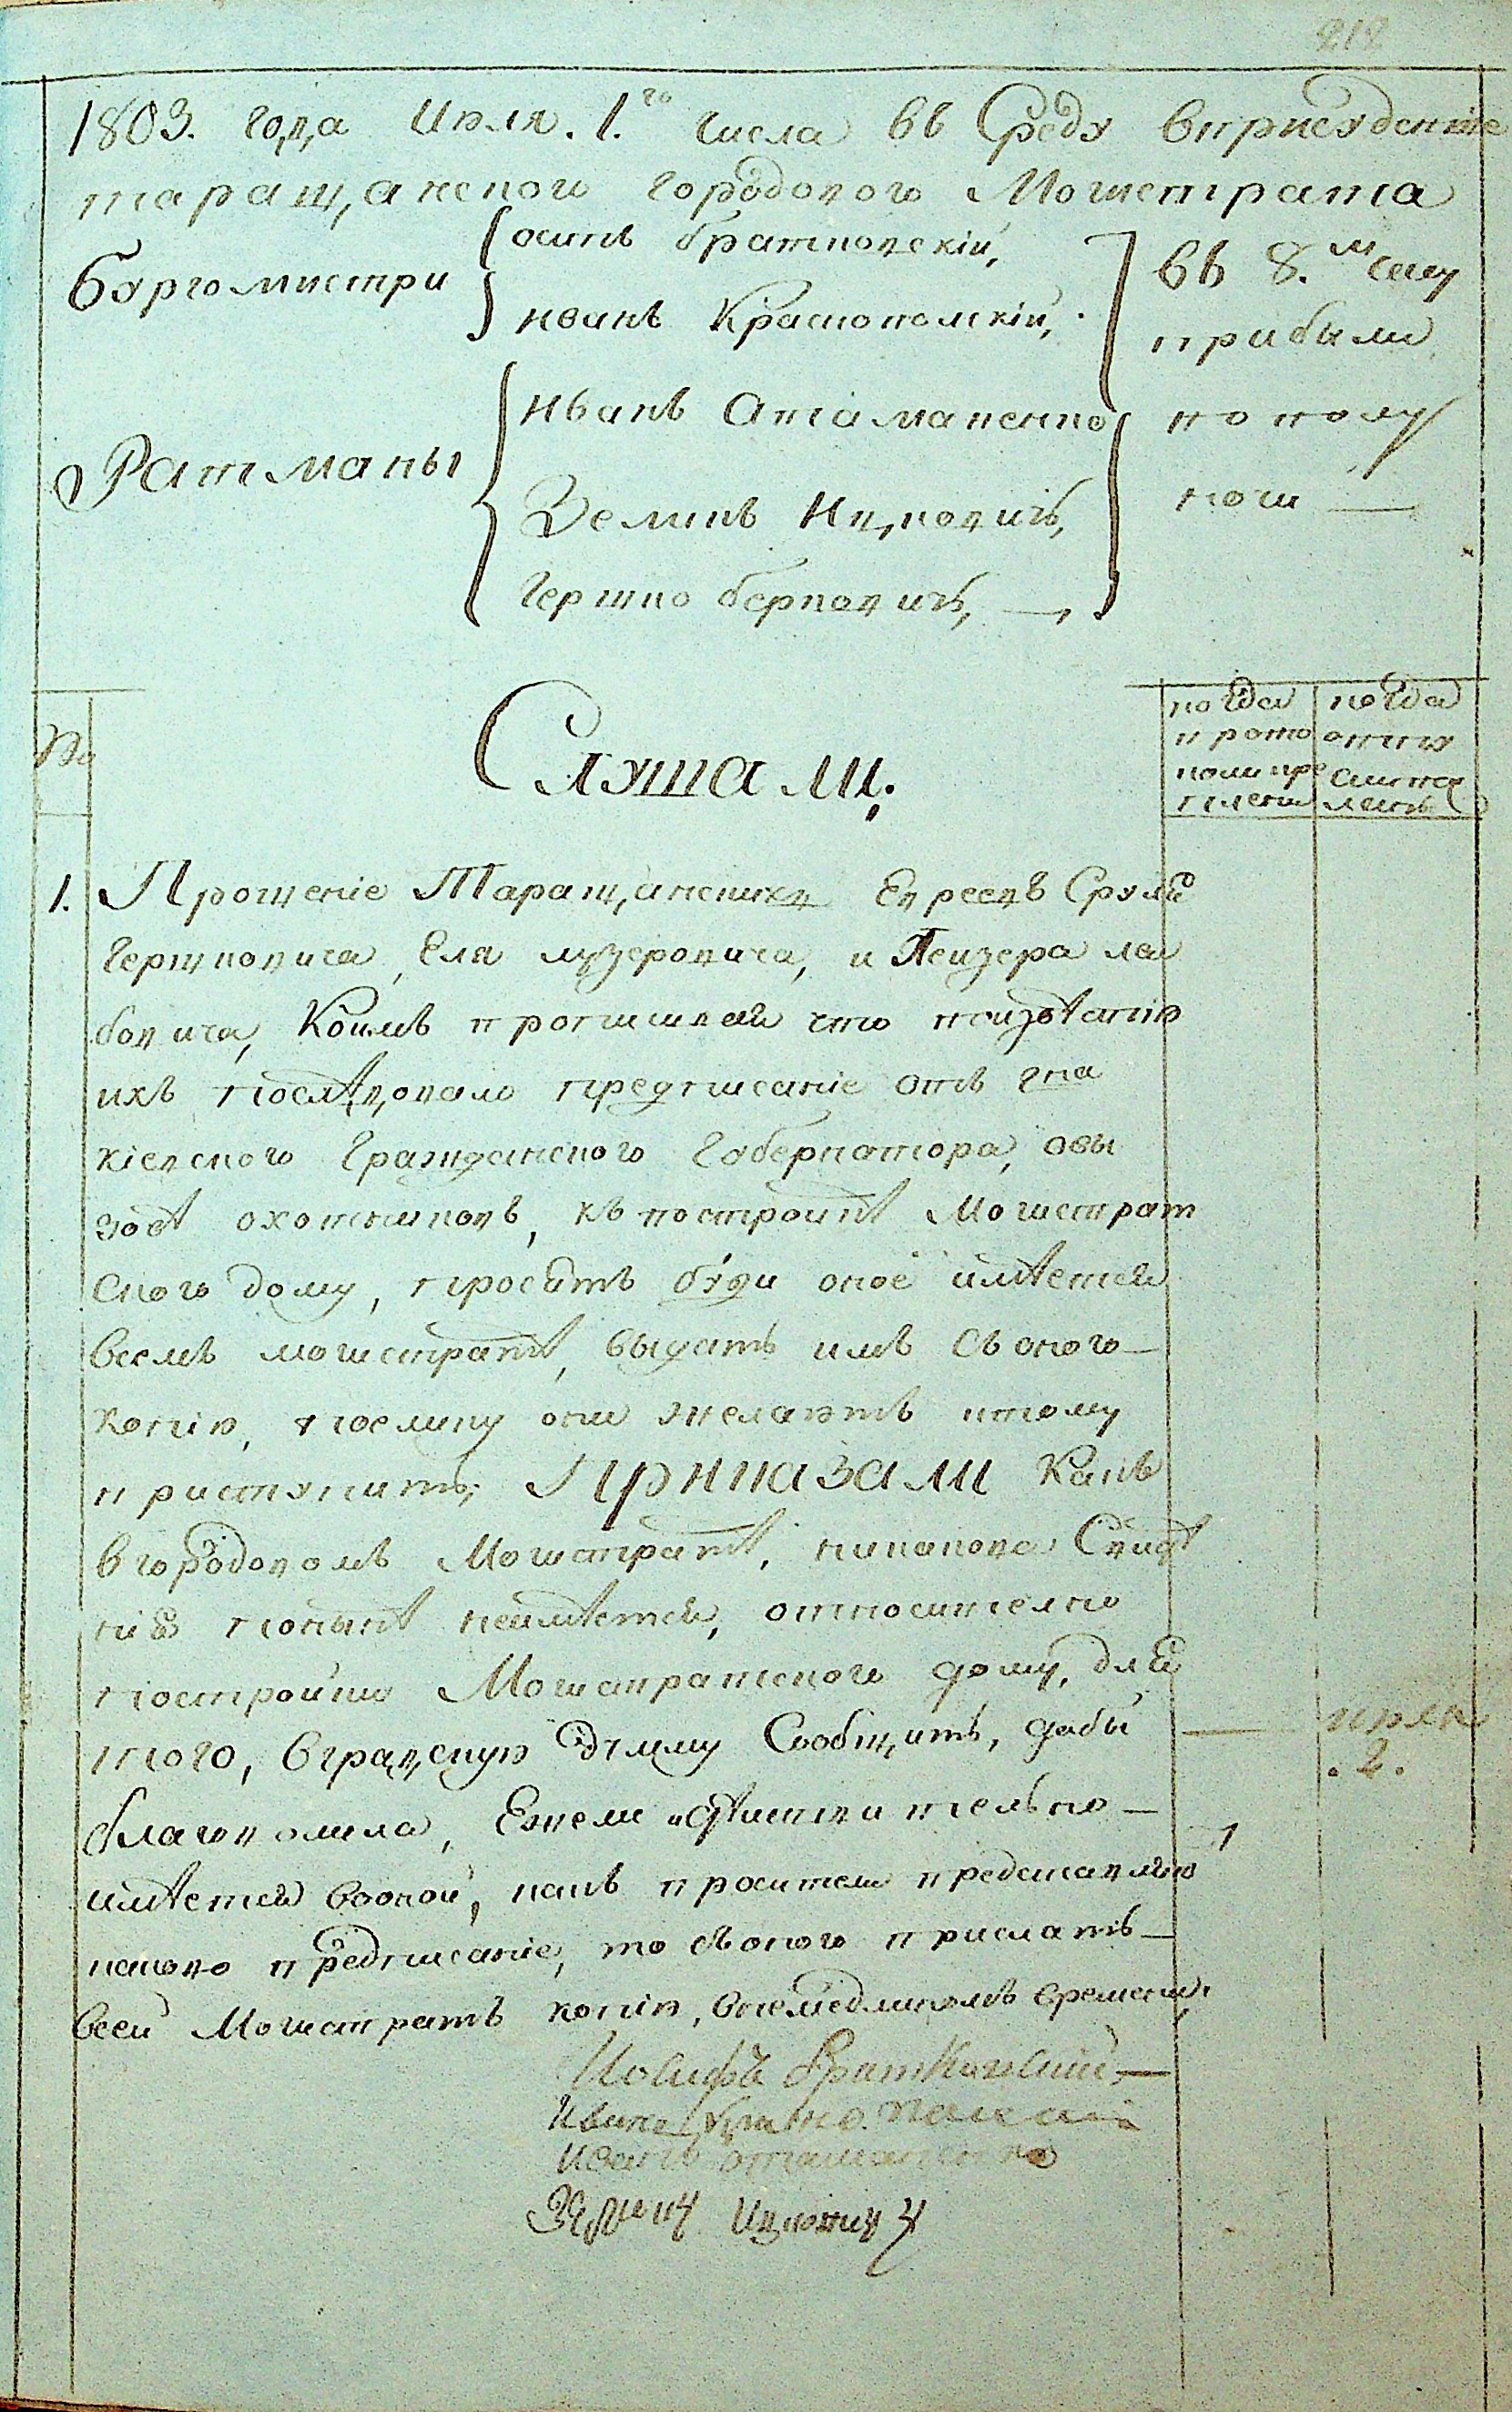 212
1803. года Июля. 1.го числа въ Среду вприсудствіе
таращанского городового Могистрата
бургомистри
осипъ братковскій,
иванъ Краснополскій,
въ 8.м часу
прибыли
Ратманы
иванъ атаманенко
Зелинъ Ицковичъ,
гершко берковичъ,
по полу
ночи
№
Слушали.
когда
прото
кол
когда
1. Прошеніе Таращанскихъ Евреевъ Сруля
гершковича, Еля лузеровича, и Леизера ле
бовича, Коимъ прописывая что
ихъ последовало предписаніе отъ гна
кіевского гражданского губернатора, овы
зове охотниковъ, къ постройке Могистрат
ского дому, просятъ буди оное имеется
всемъ могистрате, выдать имъ съ оного
копію, поелику они желаютъ ктому
приступить; Приказали Какъ
вгородовомъ Могистрате, никакова Сведе
нія поныне неимеется, относително
постройки Могистратского дому, для
того, вградскую думу Сообщить, дабы
благоволила, Ежели действително
имеется воной, какъ просители представляют
таково предписаніе, то съ оного прислать
всеи Могистратъ копію, внемедлимомъ времени,
июля
.2.
1
Иосифъ Братковский
Иванъ Краснополский
Иванъ отаманенко
Зелинъ Ицкович